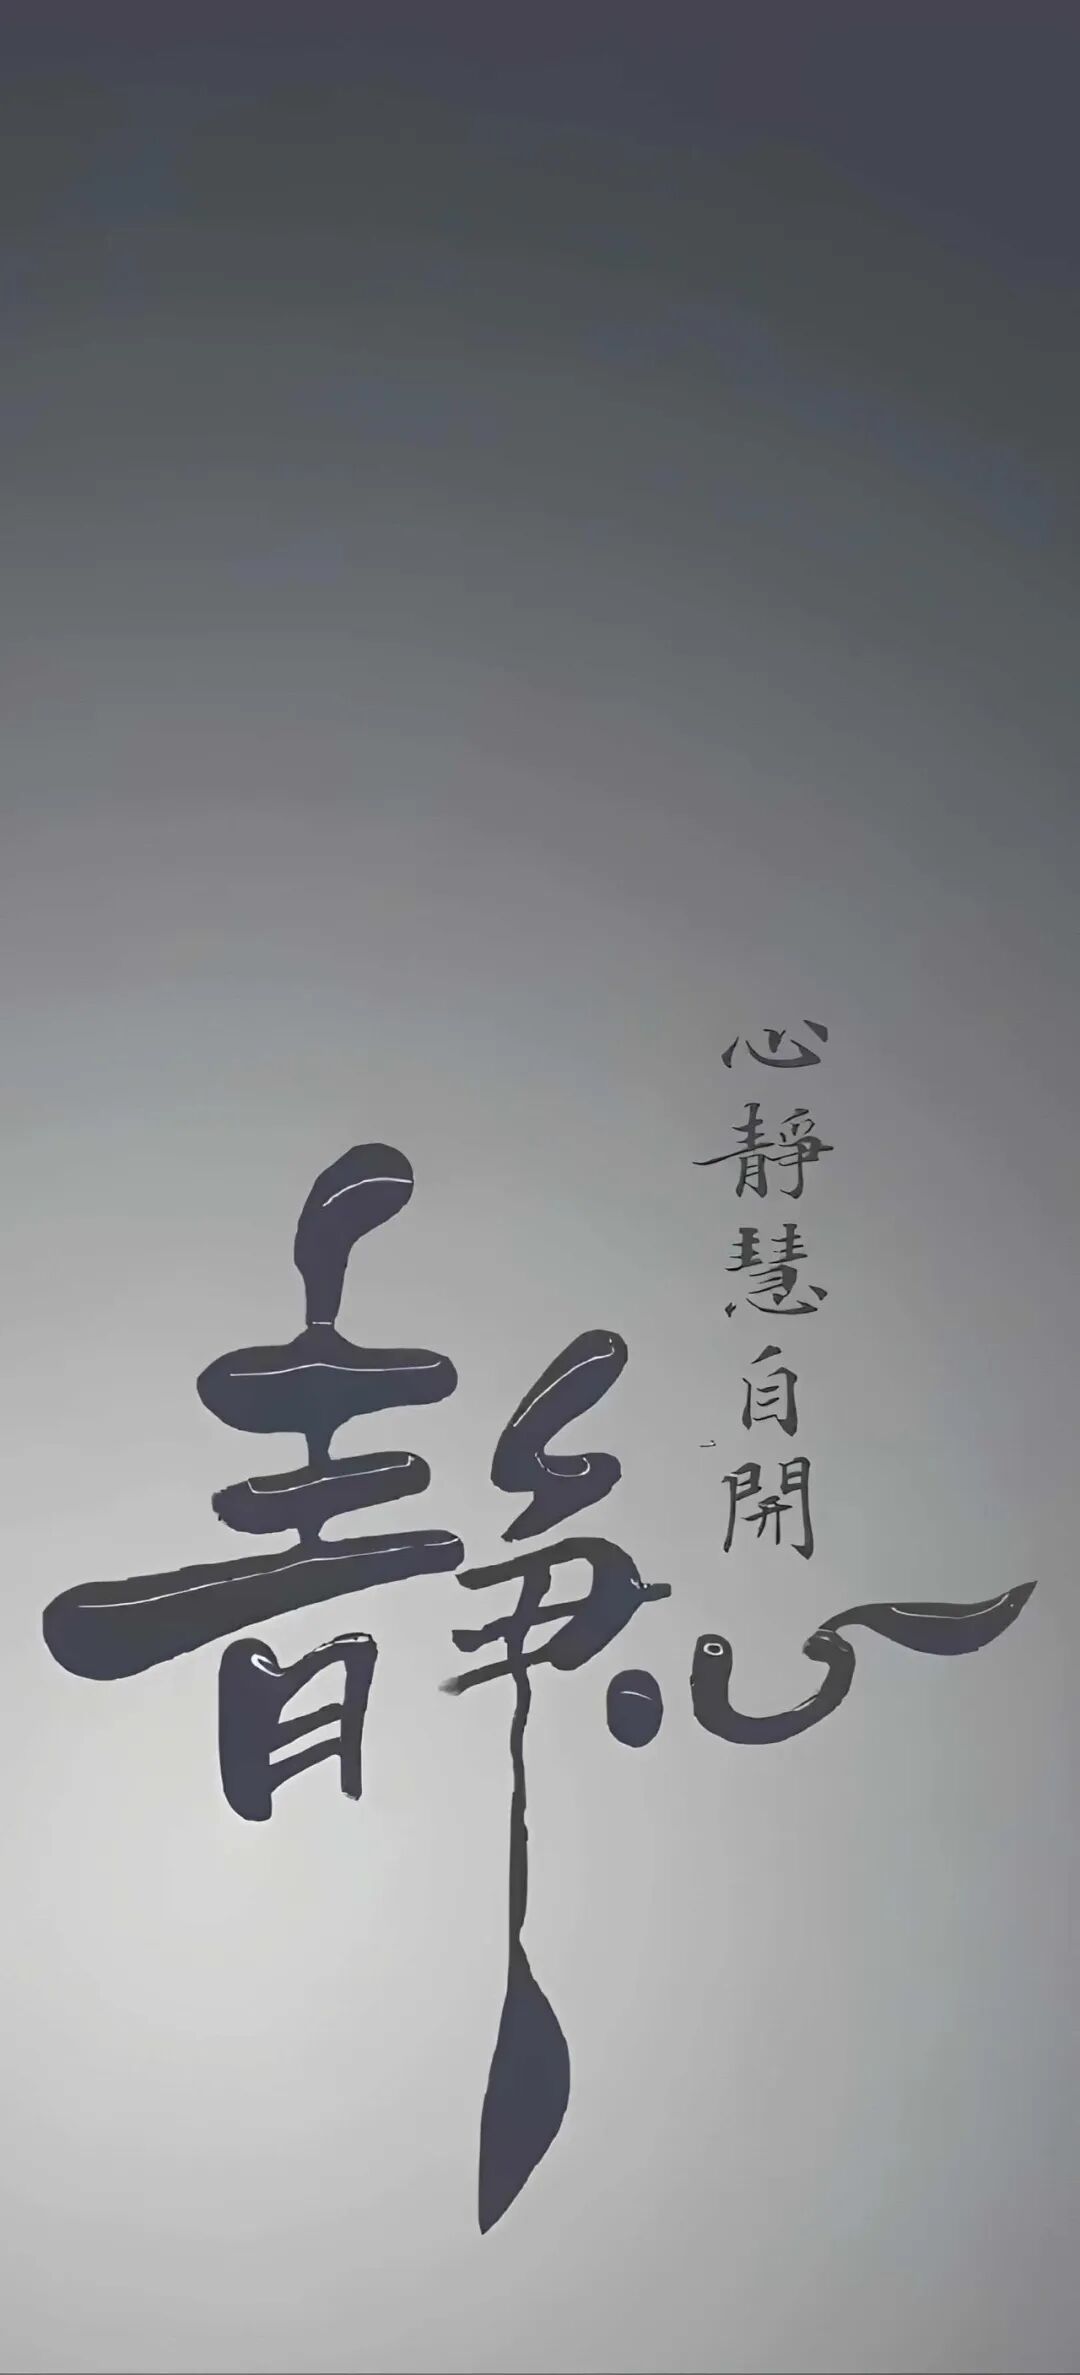 心靜慧自開
静心